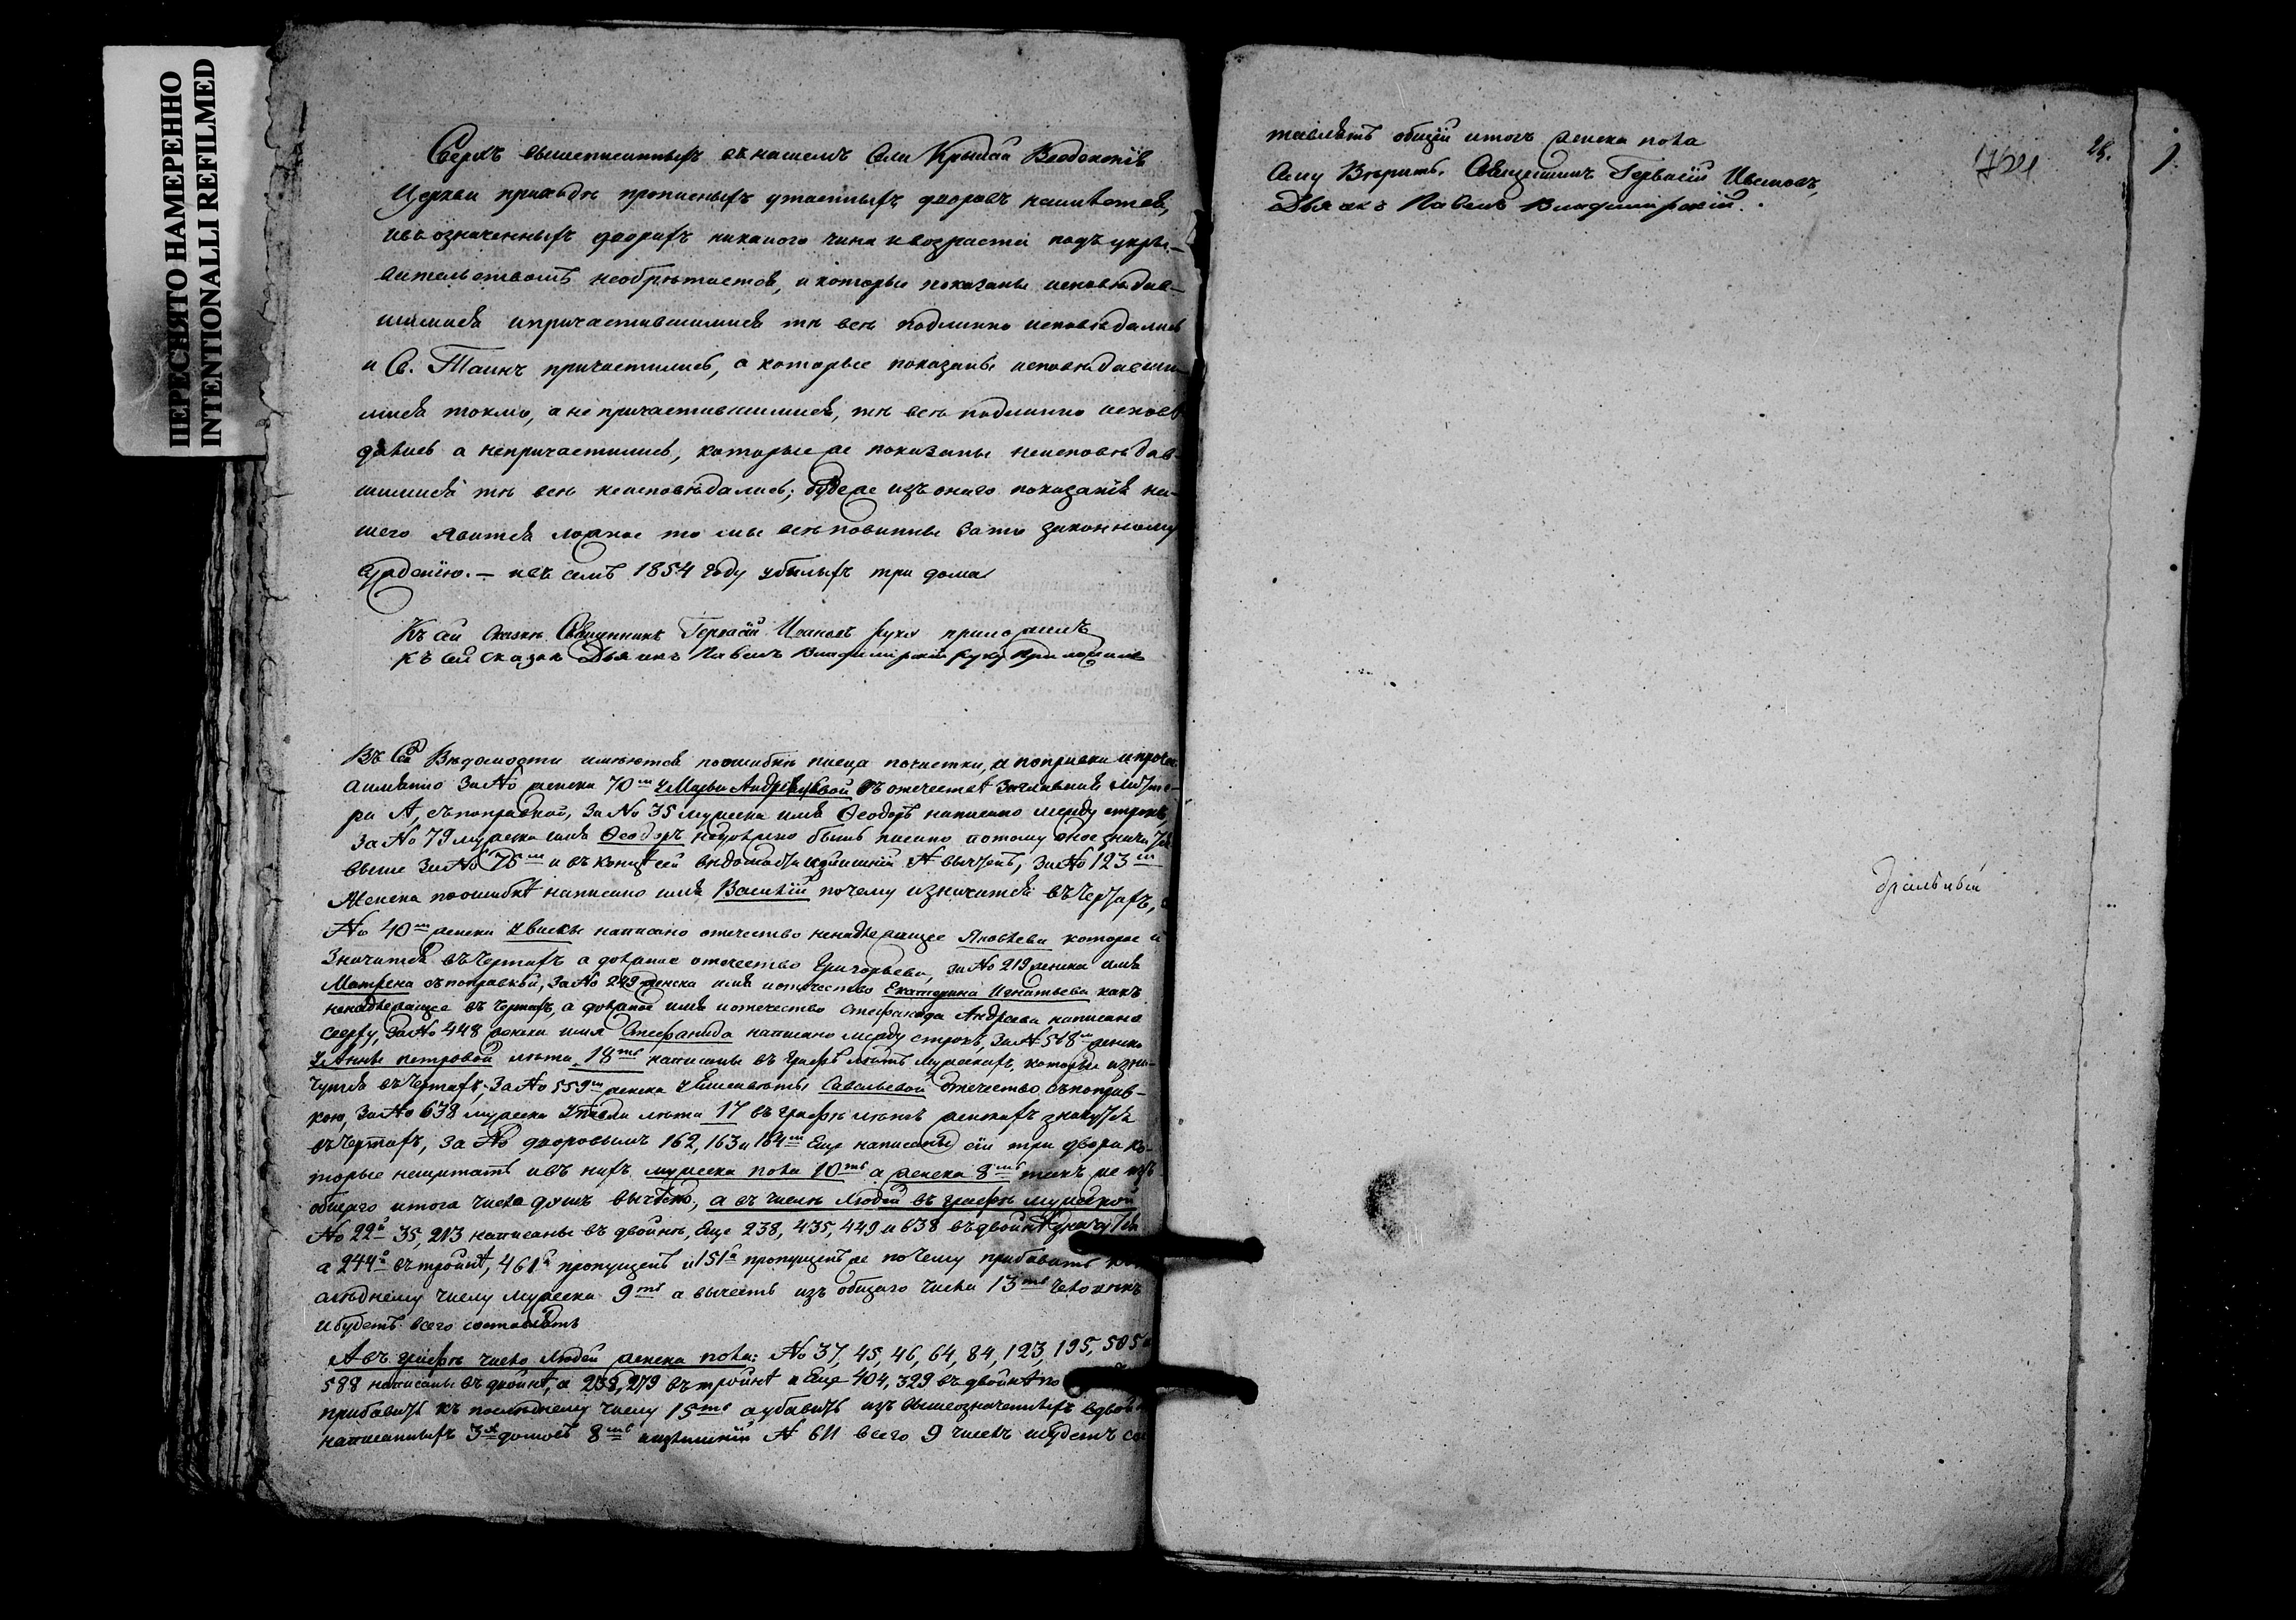 ПЕРЕСНЯТО НАМЕРЕННО
INTENTIONALLI REFILMED
Сверхъ вышеписанныхъ въ нашемъ селѣ
Церкви приходѣ прописныхъ утаенныхъ дворовъ
и въ означенныхъ дворахъ никакого чина и возраста подъ укры-
вательствомъ необрѣтается, и которые показаны исповѣдав-
шимися и причастившимися тѣ всѣ подлинно исповѣдались
и Св. Таинъ причастились, а которые показаны исповѣдавши-
мися токмо, а не причастившимися, тѣ всѣ подлинно исповѣ
дались а непричастились, которые же показаны неисповѣдав-
шимися тѣ всѣ неисповѣдались; буде же изъ онаго показанія на-
шего явится ложное то мы всѣ повинны за то законному
сужденію. – и въ семъ 1854 году убылыхъ три дома
Къ сей сказкѣ Священникъ Гервасій Ивановъ руку приложилъ
Къ сей сказкѣ Дьячекъ Павелъ Владимірскій руку приложилъ
Въ сей Вѣдомости имѣются по ошибкѣ писца почистки, и поправки
а имянно за № женска 70 у Марьи въ отечествѣ
ра А, съ поправкой, за № 35 мужеска имя Ѳеодоръ написано между строкъ,
за № 79 мужеска имя Ѳеодоръ недолжно быть писано потому
выше за № 75 и въ концѣ сей вѣдомости излишній № вычтенъ, за № 123
Женска по ошибкѣ написано имя Василій почему и значится въ чертахъ,
№ 40 женска написано отечество ненадлежащее Яковлева которое и
значится въ чертахъ а должное отечество Григорьева, за № 219 женска имя
Матрена съ поправкой, за № 249 женска имя и отечество Екатерина Игнатьева какъ
ненадлежащее въ чертахъ, а должное имя и отечество Стефанида Андреева написано
сверху, за № 448 женска имя Стефанида написано между строкъ, за № 568 женска
у Анны Петровой лѣта 18ть написаны въ графѣ лѣтъ мужескихъ, которые и зна-
чутся въ чертахъ, за № 559 женска у Елисаветы Савельевой отечество съ поправ-
кою, за № 638 мужеска у Павла лѣта 17 въ графѣ лѣтъ женскихъ значутся
въ чертахъ, за № дворовымъ 162, 163 и 164 еще написаны сіи три двора ко-
торые несчитать и въ нихъ мужеска пола 10ть а женска 8мь такъ же изъ
общаго итога числа душъ вычтено, а въ числѣ людей въ графѣ мужеской
№ 22й 35, 213 написаны въ двойнѣ, еще 238, 435, 449 и 638 въ двойнѣ значутся
а 244й въ тройнѣ, 461й пропущенъ и 151й пропущенъ же почему прибавить
слѣднему числу мужеска 9ть а вычесть изъ общаго числа 13ть человѣкъ
и будетъ всего составлять
А въ графѣ число людей женска пола: № 37, 45, 46, 64, 84, 123, 195, 505 и
588 написаны въ двойнѣ, а 258, 279 въ тройнѣ и еще 404, 329 въ двойнѣ по
прибавить къ послѣднему числу 15ть а убавить изъ вышеозначенныхъ вдвой
написанныхъ 3хъ домовъ 8мь и излишній № 611 всего 9 числъ и будетъ сос
тавлять общій итогъ женска пола
Сему вѣрить. Священникъ Гервасій Ивановъ,
Дьячекъ Павелъ Владимірскій.